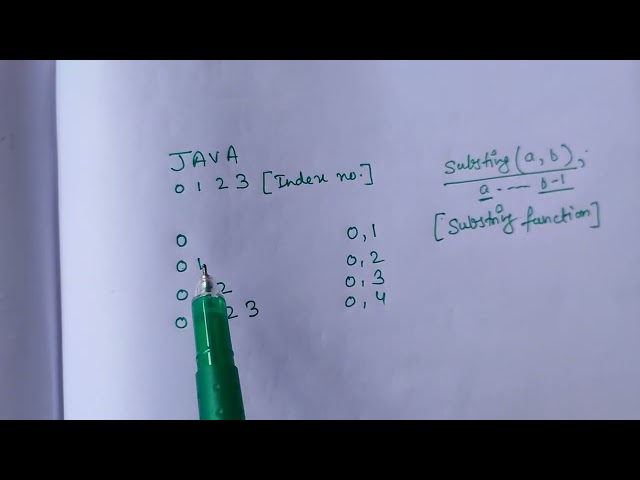 JAVA
0 1 2 3 [Index no.]
0
0 1
0 2
0 2 3
0, 1
0, 2
0, 3
0, 4
Substing (a, b);
a .... b-1
[Substring function]